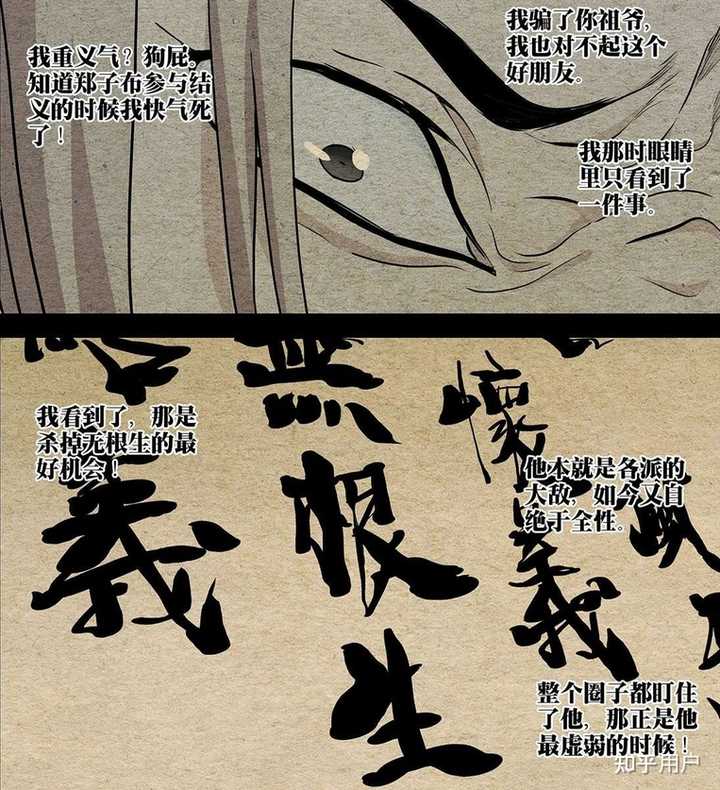 我重义气?狗屁。
知道郑子布参与结
义的时候我快气死
了!
我骗了你祖爷,
我也对不起这个
好朋友。
我那时眼睛
里只看到了
一件事。
我看到了,那是
杀掉无根生的最
好机会!
無根生
義
懷義
他本就是各派的
大敌,如今又自
绝于全性。
整个圈子都盯住
了他,那正是他
最虚弱的时候!
知乎用户